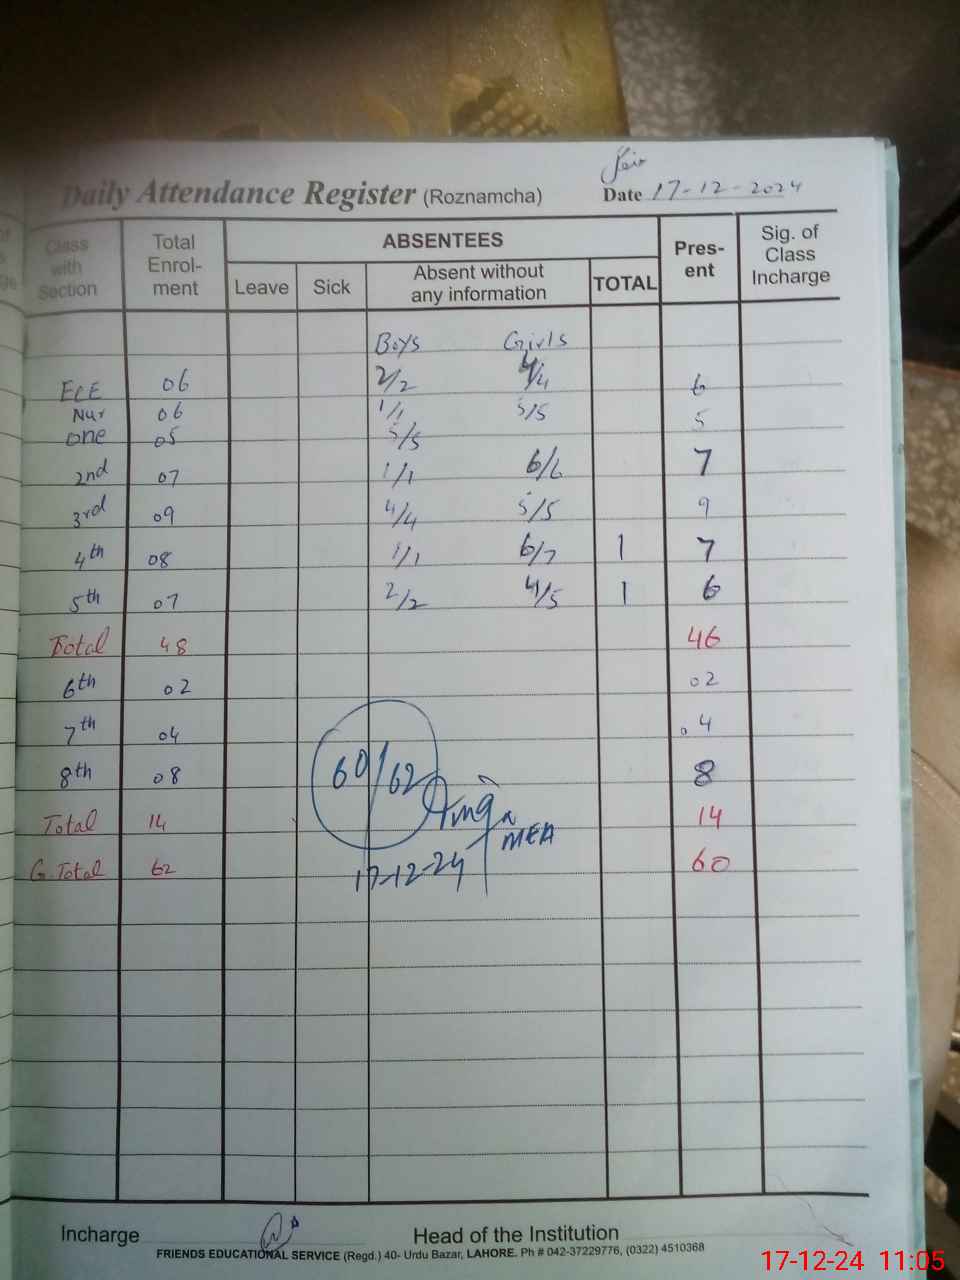 Daily Attendance Register (Roznamcha) Date 17-12-2024
Class with Section
Total Enrol-ment
ABSENTEES
Leave Sick Absent without any information TOTAL
Pres-ent
Sig. of Class Incharge
Boys Girls
ECE 06 2/2 4/4 6
Nur 06 1/1 5/5 5
One 05 5/5
2nd 07 1/1 6/6 7
3rd 09 4/4 5/5 9
4th 08 1/1 6/7 1 7
5th 07 2/2 4/5 1 6
Total 48 46
6th 02 02
7th 04 04
8th 08 8
60/62
Total 14 14
MEA
G.Total 62 60
17-12-24
Incharge Head of the Institution
FRIENDS EDUCATIONAL SERVICE (Regd.) 40- Urdu Bazar, LAHORE. Ph # 042-37229776, (0322) 4510368
17-12-24 11:05